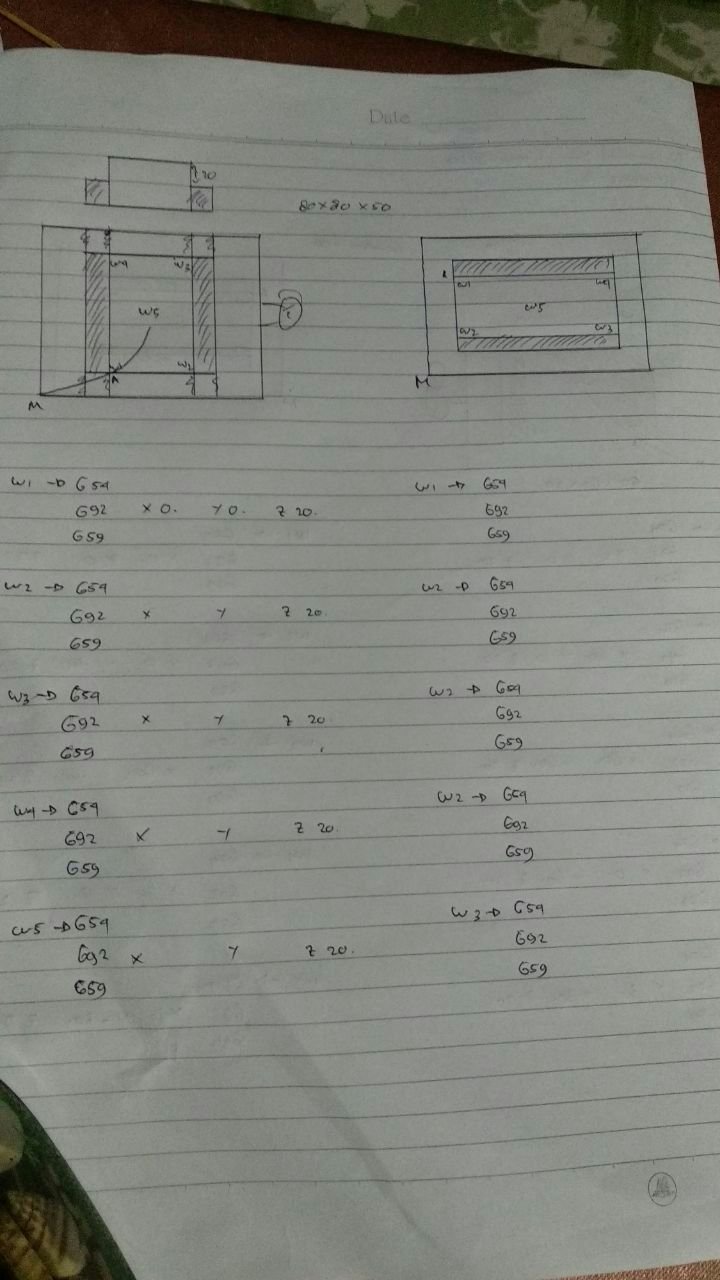 Date
20
80×20×50
w4
w3
w5
w2
A
M
w1
w4
w5
w2
w3
M
w1 → G54
G92 X 0. Y 0. Z 20.
G59
w2 → G54
G92 X Y Z 20.
G59
w3 → G54
G92 X Y Z 20.
G59
w4 → G54
G92 X Y Z 20.
G59
w5 → G54
G92 X Y Z 20.
G59
w1 → G54
G92
G59
w2 → G54
G92
G59
w2 → G54
G92
G59
w2 → G54
G92
G59
w3 → G54
G92
G59